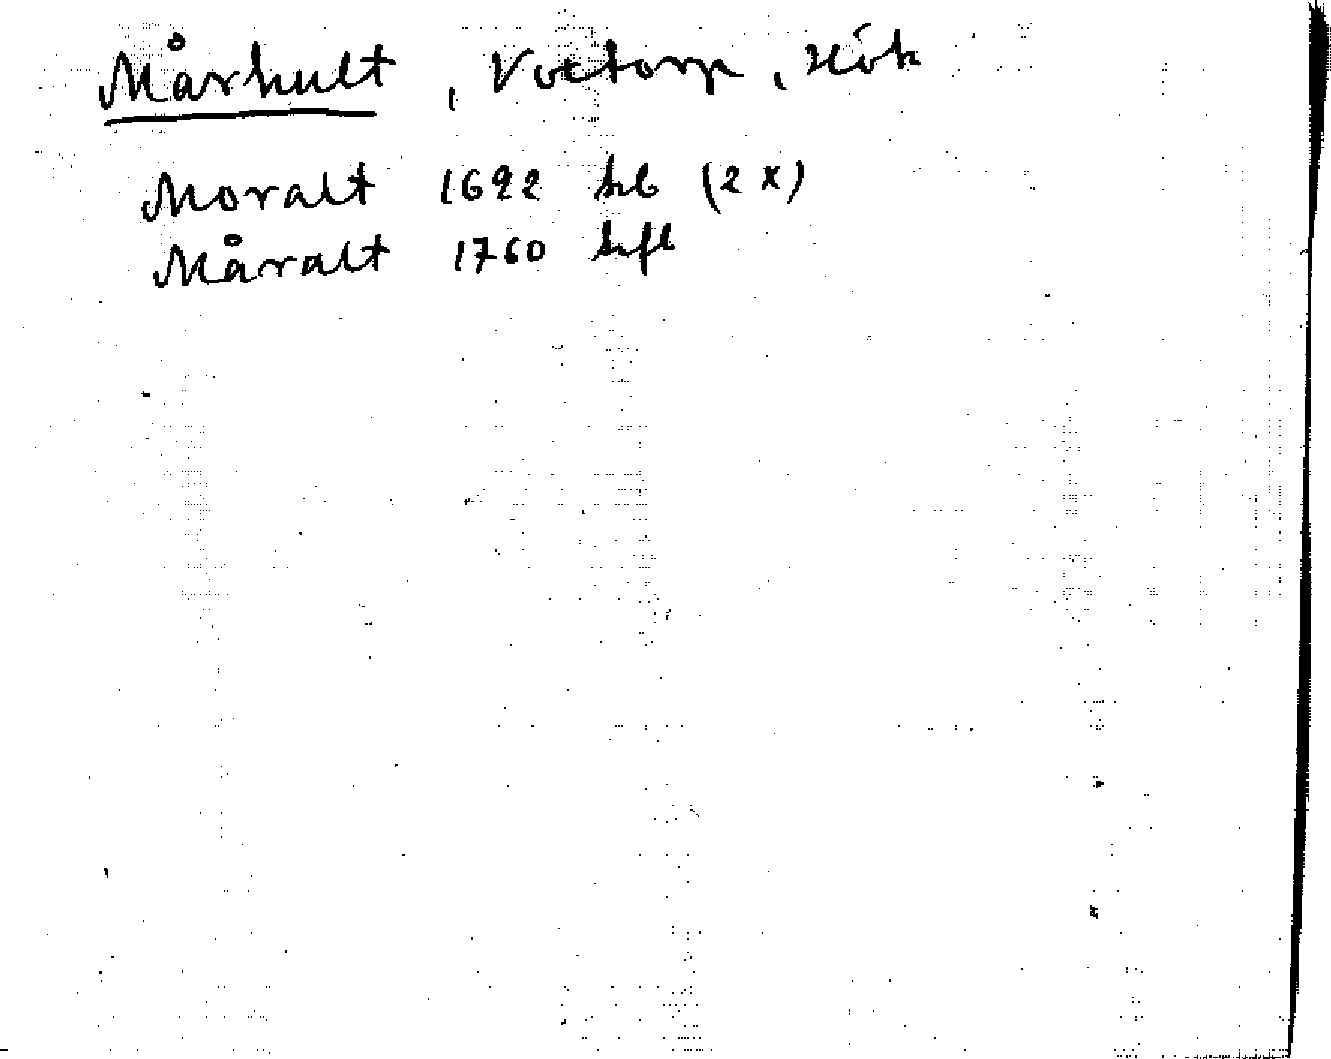 Mårhult, Voxtorp, Hök
Moralt 1692 (2 x)
Måralt 1760